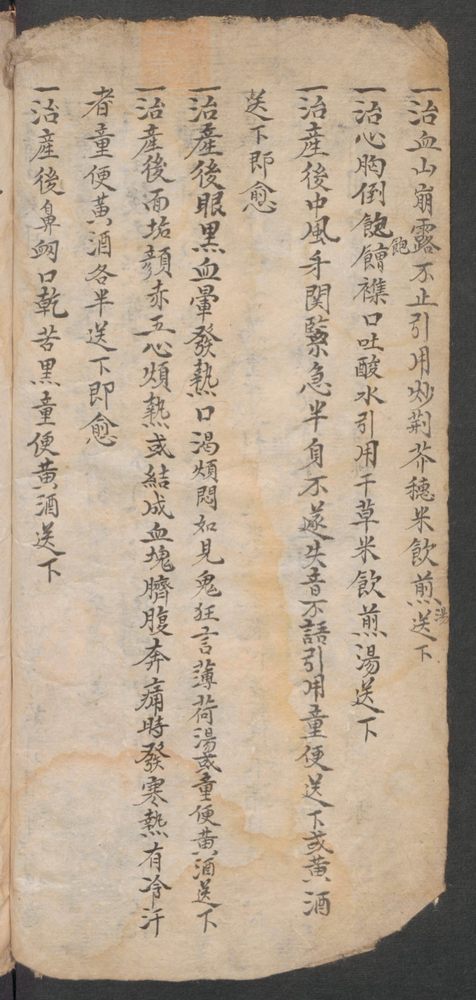 一治血山崩露不止引用炒荆芥穗米飲煎湯送下
一治心胸倒飽饐襍口吐酸水引用干草米飲煎湯送下
一治產後中風牙関緊急半身不遂失音不語引用童便送下或黄酒
送下即愈
一治產後眼黑血暈發熱口渴煩悶如見鬼狂言薄荷湯或童便黄酒送下
一治產後面垢顔赤五心煩熱或結成血塊臍腹奔痛時發寒熱有冷汗
者童便黄酒各半送下即愈
一治產後鼻衂口乾苦黑童便黄酒送下